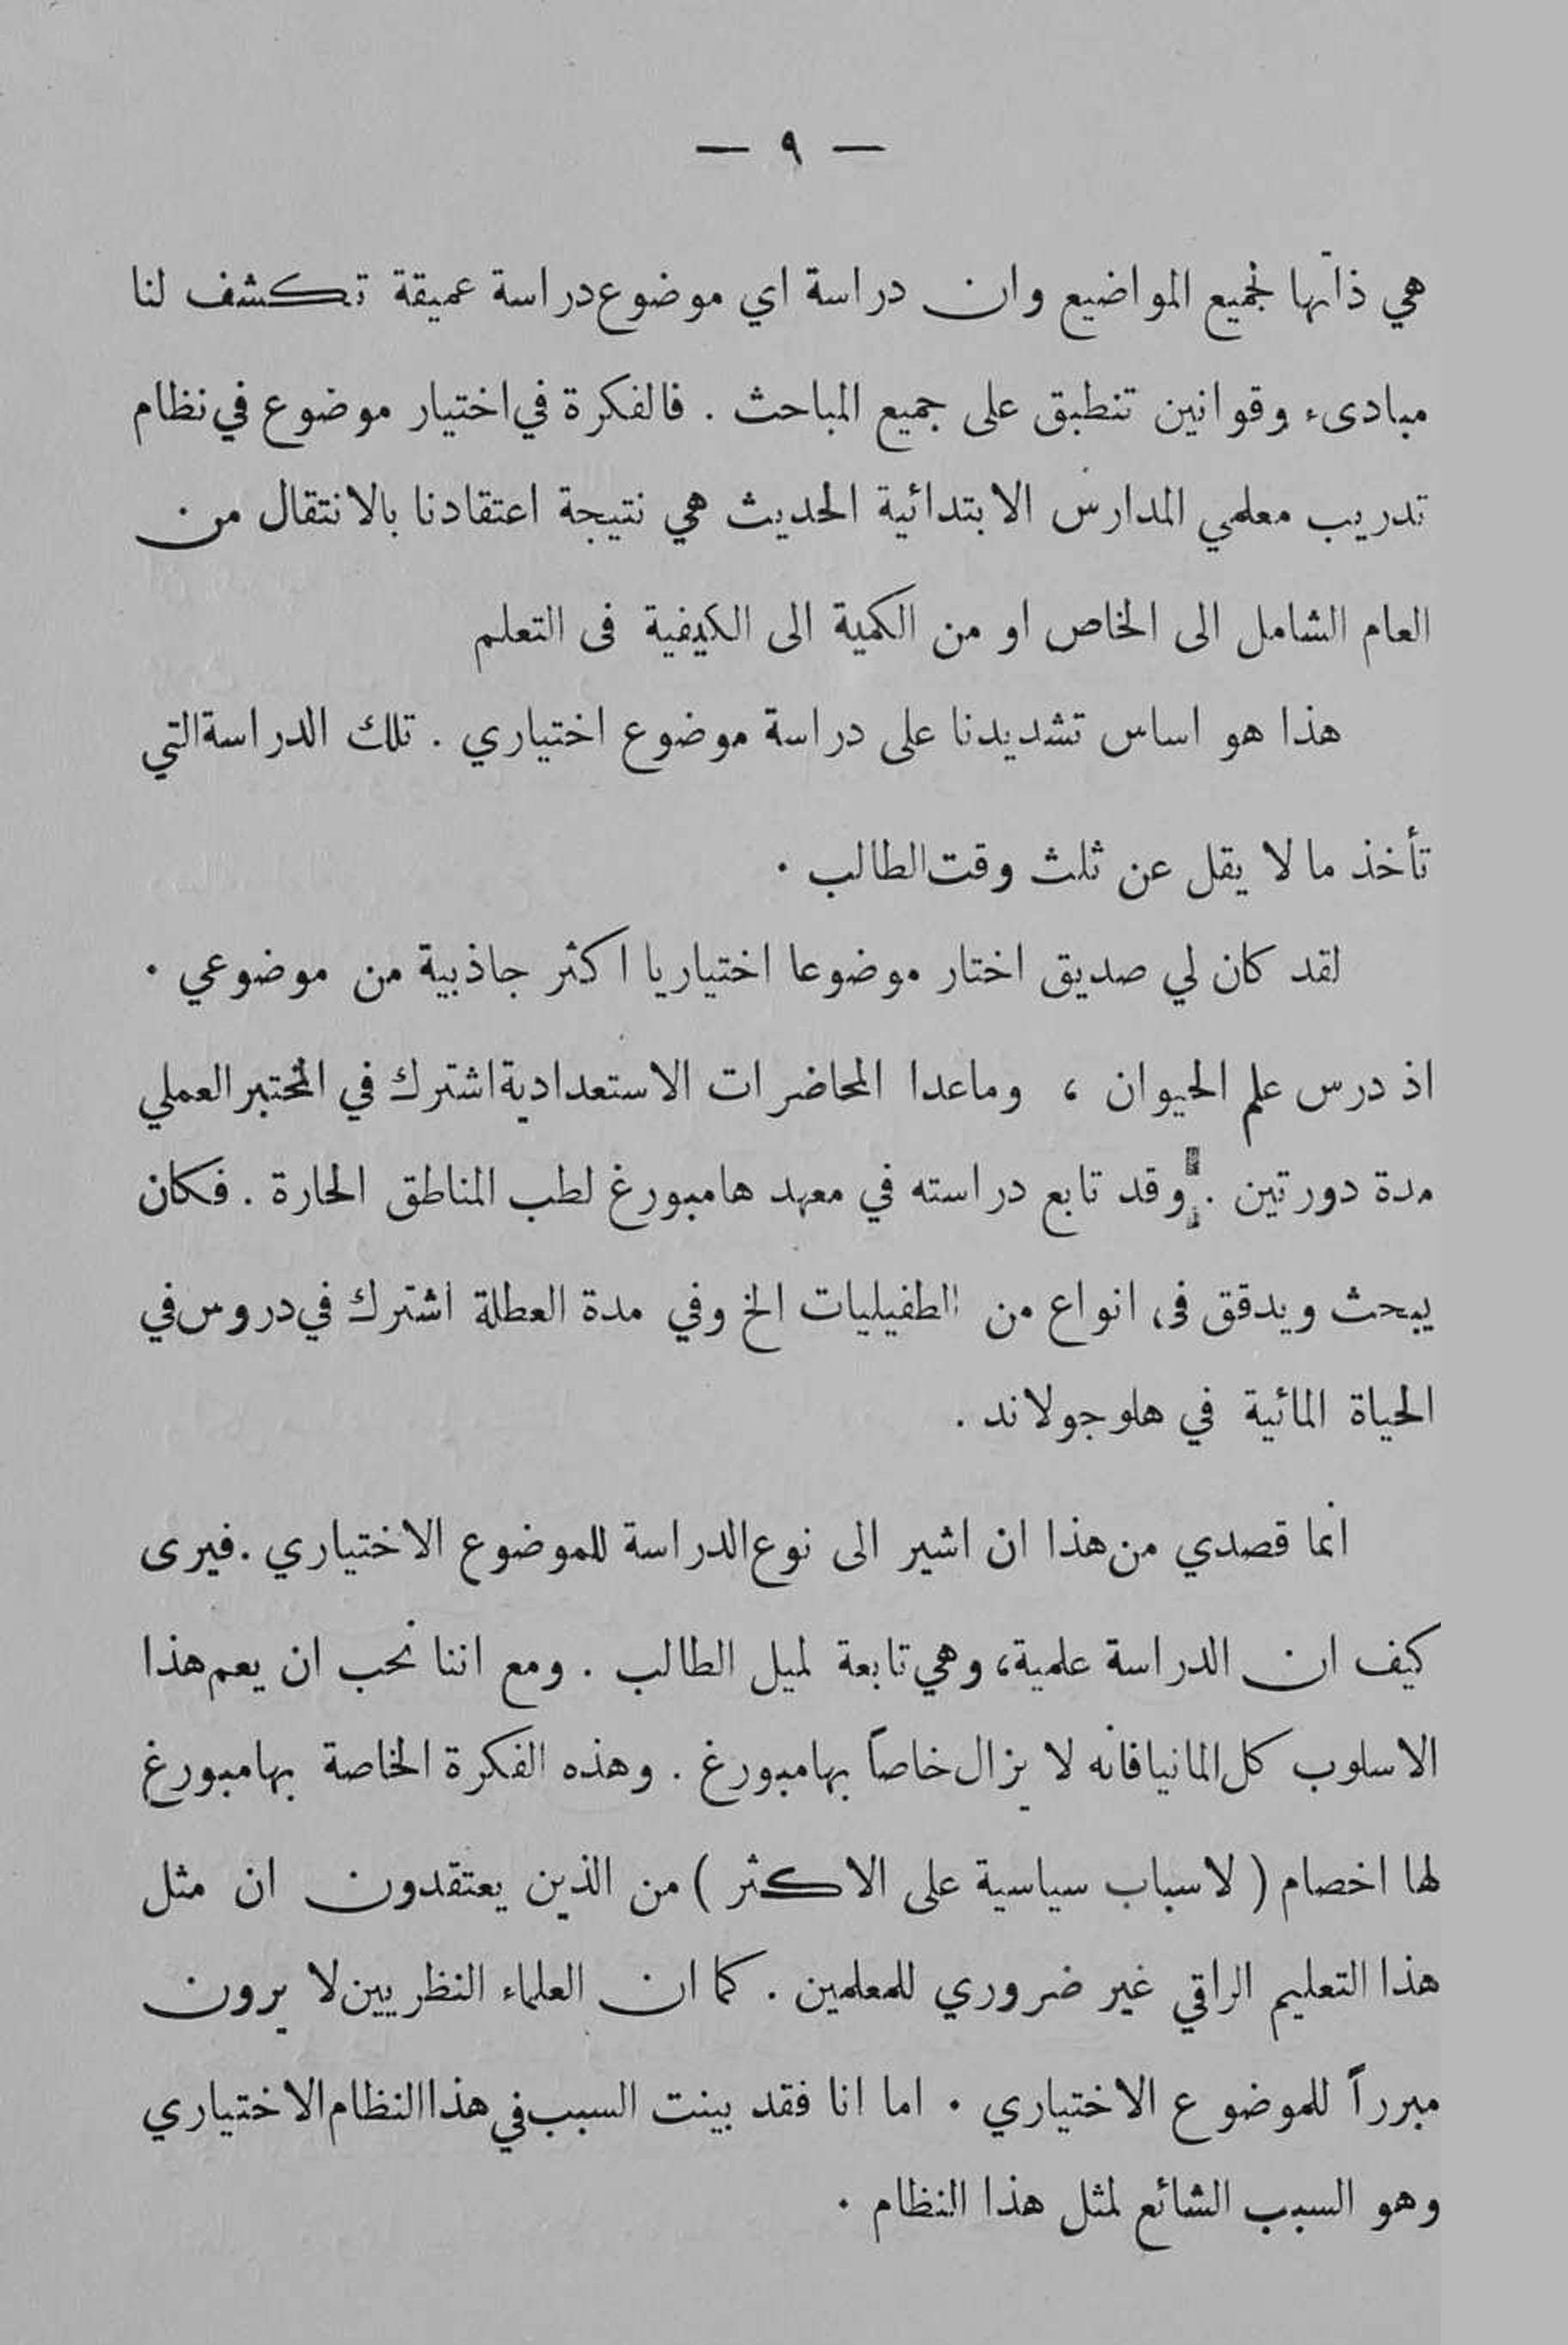 — ٩ —
هي ذاتها لجميع المواضيع وان دراسة اي موضوع دراسة عميقة تكشف لنا
مبادىء وقوانين تنطبق على جميع المباحث . فالفكرة في اختيار موضوع في نظام
تدريب معلمي المدارس الابتدائية الحديث هي نتيجة اعتقادنا بالانتقال من
العام الشامل الى الخاص او من الكمية الى الكيفية فى التعلم
هذا هو اساس تشديدنا على دراسة موضوع اختياري . تلك الدراسة التي
تأخذ ما لا يقل عن ثلث وقت الطالب .
لقد كان لي صديق اختار موضوعا اختياريا اكثر جاذبية من موضوعي .
اذ درس علم الحيوان ، وماعدا المحاضرات الاستعدادية اشترك في المختبر العملي
مدة دورتين . وقد تابع دراسته في معهد هامبورغ لطب المناطق الحارة . فكان
يبحث ويدقق فى انواع من الطفيليات الخ وفي مدة العطلة اشترك في دروس في
الحياة المائية في هلوجولاند .
انما قصدي من هذا ان اشير الى نوع الدراسة للموضوع الاختياري . فيرى
كيف ان الدراسة علمية، وهي تابعة لميل الطالب . ومع اننا نحب ان يعم هذا
الاسلوب كل المانيا فانه لا يزال خاصاً بهامبورغ . وهذه الفكرة الخاصة بهامبورغ
لها اخصام ( لاسباب سياسية على الاكثر ) من الذين يعتقدون ان مثل
هذا التعليم الراقي غير ضروري للمعلمين . كما ان العلماء النظريين لا يرون
مبرراً للموضوع الاختياري . اما انا فقد بينت السبب في هذا النظام الاختياري
وهو السبب الشائع لمثل هذا النظام .